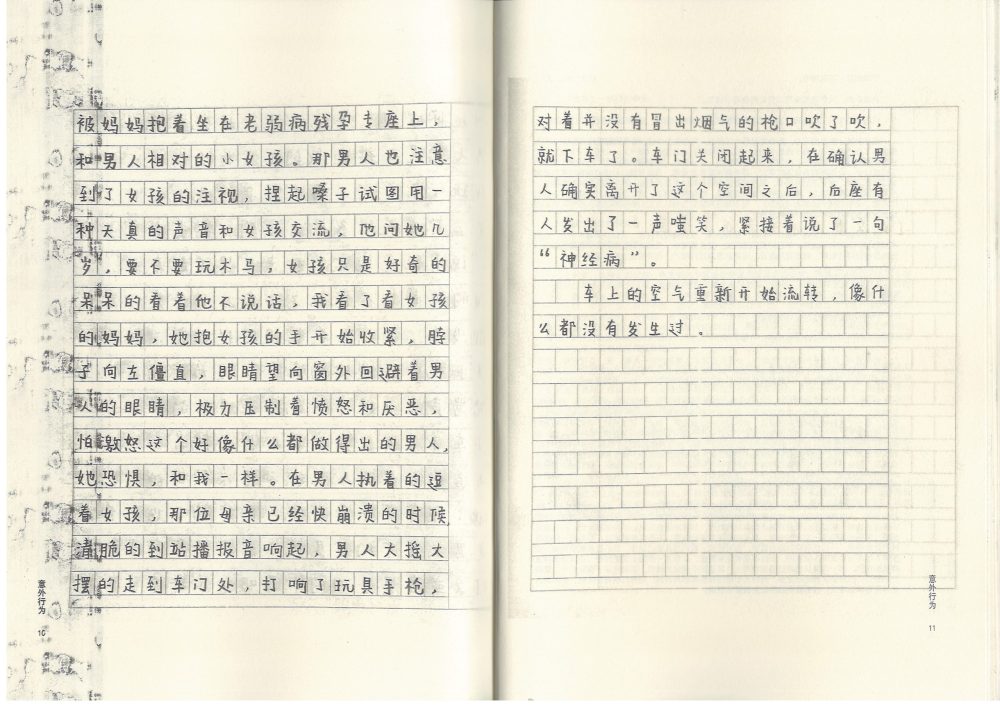 被妈妈抱着坐在老弱病残孕专座上，
和男人相对的小女孩。那男人也注意
到了女孩的注视，捏起嗓子试图用一
种天真的声音和女孩交流，他问她几
岁，要不要玩木马，女孩只是好奇的
呆呆的看着他不说话，我看了看女孩
的妈妈，她抱女孩的手开始收紧，脖
子向左僵直，眼睛望向窗外回避着男
人的眼睛，极力压制着愤怒和厌恶，
怕激怒这个好像什么都做得出的男人，
她恐惧，和我一样。在男人执着的逗
着女孩，那位母亲已经快崩溃的时候，
清脆的到站播报音响起，男人大摇大
摆的走到车门处，打响了玩具手枪，
意外行为
10
对着并没有冒出烟气的枪口吹了吹，
就下车了。车门关闭起来，在确认男
人确实离开了这个空间之后，后座有
人发出了一声嗤笑，紧接着说了一句
“神经病”。
车上的空气重新开始流转，像什
么都没有发生过。
意外行为
11